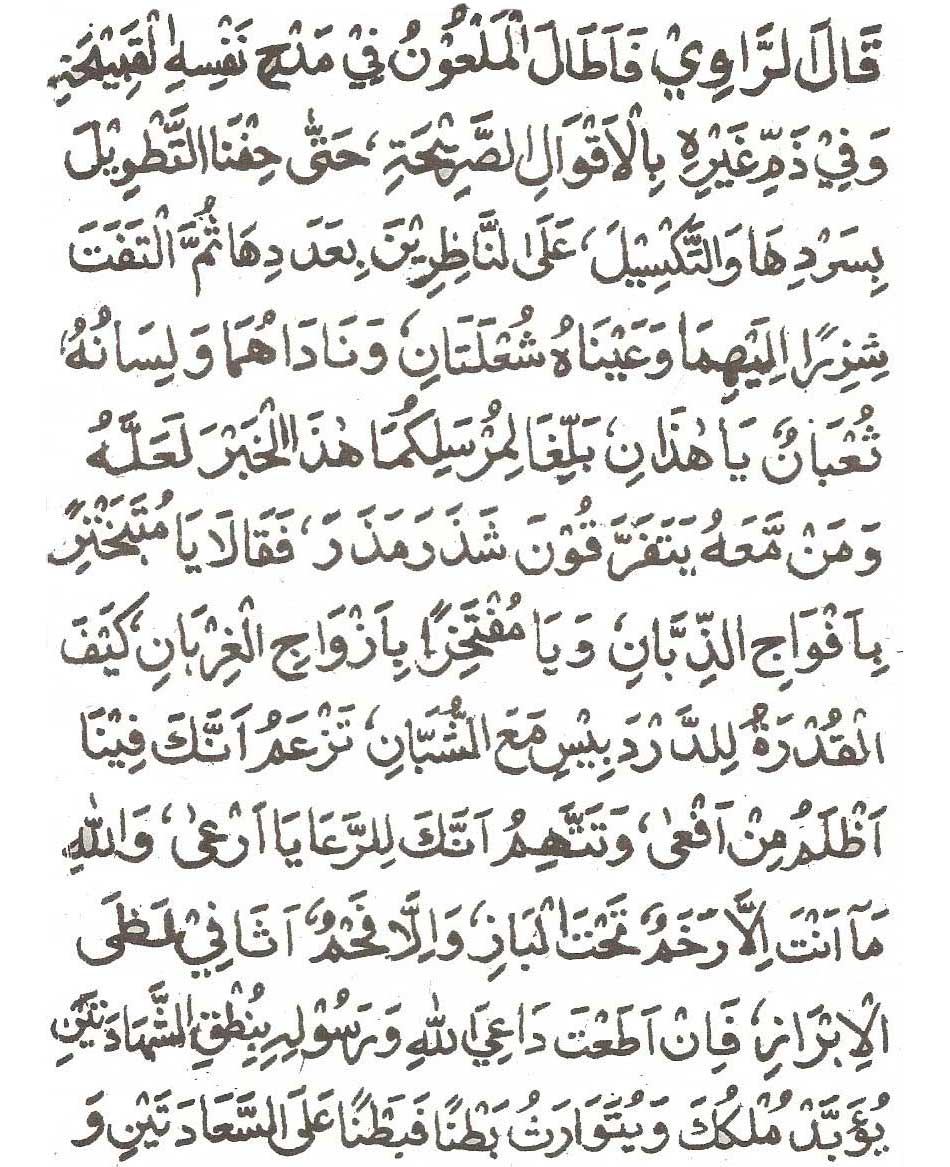 قَالَ الرَّاوِيْ فَاَطَالَ الْمَلْعُوْنُ فِيْ مَدْحِ نَفْسِهِ الْقَبِيْحَةِ
وَفِيْ ذَمِّ غَيْرِهِ بِالْاَقْوَالِ الصَّرِيْحَةِ، حَتّٰى خِفْنَا التَّطْوِيْلَ
بِسَرْدِهَا وَالتَّكْسِيْلَ، عَلَى النَّاظِرِيْنَ بِعَدَدِهَا ثُمَّ الْتَفَتَ
شِزِرًا اِلَيْهِمَا وَعَيْنَاهُ شُعْلَتَانِ، وَنَادَاهُمَا وَلِسَانُهُ
ثُعْبَانٌ، يَا هٰذَانِ، بَلِّغَا لِمُرْسَلِكُمَا هٰذَا الْخَبَرَ لَعَلَّهُ
وَمَنْ مَّعَهُ يَتَفَرَّقُوْنَ شَذَرَمَذَرَ، فَقَالَا يَا مُتَبَخْتِرً
بِاَفْوَاجِ الذِّبَّانِ، وَيَا مُفْتَخِرًا بِاَزْوَاجِ الْغِرْبَانِ، كَيْفَ
الْقُدْرَةُ لِلدَّرْدَبِيْسِ مَعَ الشُّبَّانِ، تَزْعَمُ اَنَّكَ فِيْنَا
اَظْلَمُ مِنْ اَفْعٰى، وَتَتَّهِمُ اَنَّكَ لِلرَّعَايَا اَرْعٰى، وَاللّٰهِ
مَآ اَنْتَ اِلَّا رَخَمٌ تَحْتَ الْبَازِ، وَاِلَّا فَحْمٌ اَثَافِيْ لَظٰى
الْاِبْرَازِ، فَاِنْ اَطَعْتَ دَاعِيَ اللّٰهِ وَرَسُوْلِهِ بِنُطْقِ الشَّهَادَتَيْنِ
يُؤَبَّدْ مُلْكُكَ وَيُتَوَارَثُ بَطْنًا فَبَطْنًا عَلَى السَّعَادَتَيْنِ وَ